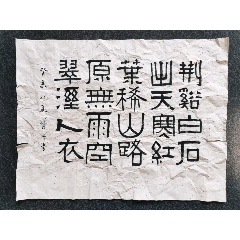 荆谿白石
出天寒紅
葉稀山路
原無雨空
翠溼人衣
癸未